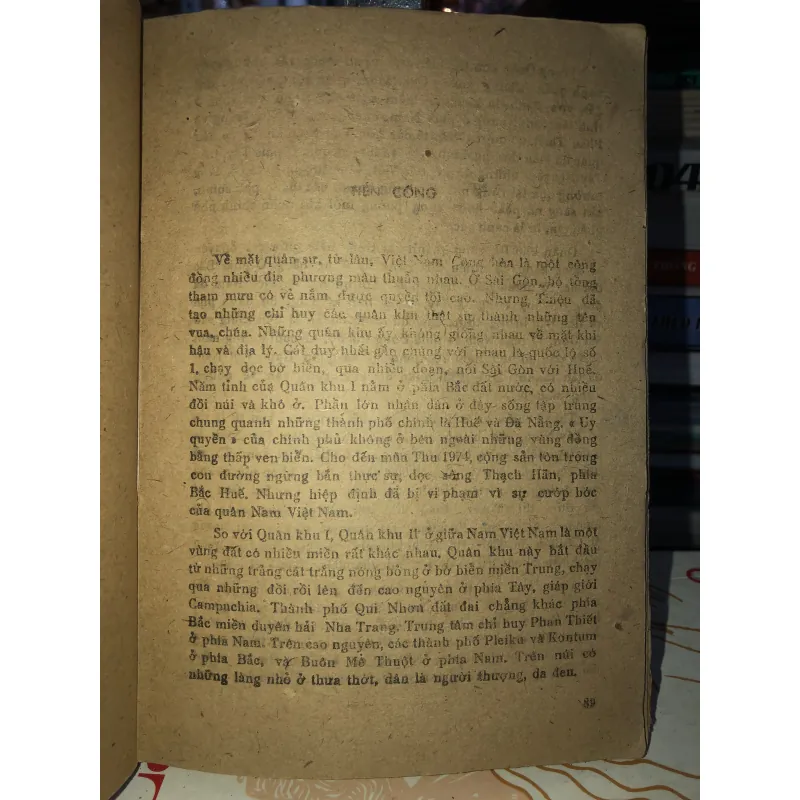 TIẾN CÔNG
Về mặt quân sự, từ lâu, Việt Nam Cộng hòa là một cộng
đồng nhiều địa phương mâu thuẫn nhau. Ở Sài Gòn, bộ tổng
tham mưu có vẻ nắm được quyền tối cao. Nhưng Thiệu đã
tạo những chỉ huy các quân khu thật sự thành những tên
vua, chúa. Những quân khu ấy không giống nhau về mặt khí
hậu và địa lý. Cái duy nhất gắn chúng với nhau là quốc lộ số
1, chạy dọc bờ biển, qua nhiều đoạn, nối Sài Gòn với Huế.
Năm tỉnh của Quân khu I nằm ở phía Bắc đất nước, có nhiều
đồi núi và khô ở. Phần lớn nhân dân ở đây sống tập trung
chung quanh những thành phố chính là Huế và Đà Nẵng. « Uy
quyền » của chính phủ không ở bên ngoài những vùng đồng
bằng thấp ven biển. Cho đến mùa Thu 1974, cộng sản tôn trọng
con đường ngừng bắn thực sự, dọc sông Thạch Hãn, phía
Bắc Huế. Nhưng hiệp định đã bị vi phạm vì sự cướp bóc
của quân Nam Việt Nam.
So với Quân khu I, Quân khu II ở giữa Nam Việt Nam là một
vùng đất có nhiều miền rất khác nhau. Quân khu này bắt đầu
từ những trảng cát trắng nóng bỏng ở bờ biển miền Trung, chạy
qua những đồi rồi lên đến cao nguyên ở phía Tây, giáp giới
Campuchia. Thành phố Qui Nhơn đất đai chẳng khác phía
Bắc miền duyên hải Nha Trang. Trung tâm chỉ huy Phan Thiết
ở phía Nam. Trên cao nguyên, các thành phố Pleiku và Kontum
ở phía Bắc, và Buôn Mê Thuột ở phía Nam. Trên núi có
những làng nhỏ ở thưa thớt, dân là người thượng, da đen.
89
04